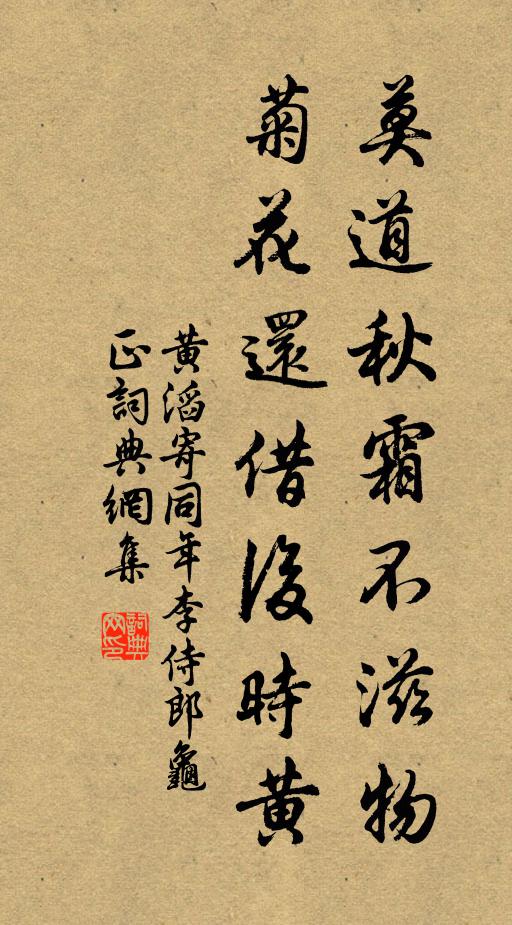 莫道秋霜不滋物
菊花還借後時黄
黄滔寄同年李侍郎龜
正詞典網集
詞典網印